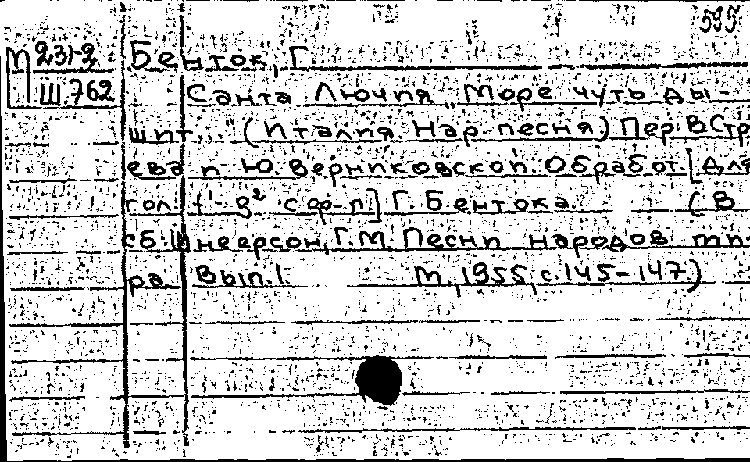 595
М 231-2 Бенток, Г.
Ш 762 Санта Лючия „Море чуть ды-
шит..." (Италия. Нар. песня) Пер. В Стр
ева и Ю. Верниковской. Обработ. [для
гол. f¹-g² с ф-п] Г. Бентока. (В
сб: Шнеерсон, Г.М. Песни народов ми-
ра Вып. 1. М., 1955, с. 145-147)